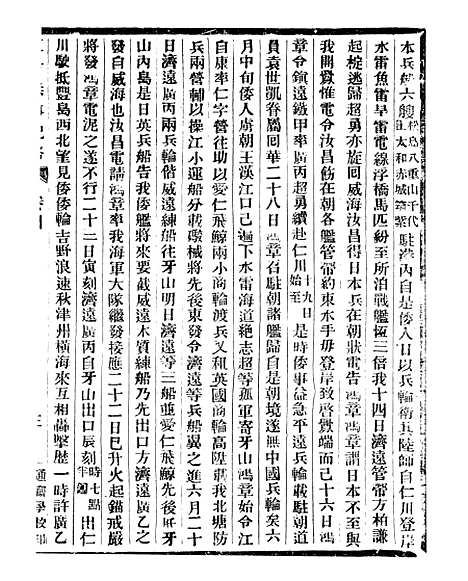 本兵艦六艘松島八重山千代田大和赤城筑紫駐港內自是倭人日以兵輪衛其陸師自仁川登岸
水雷魚雷旱雷電線浮橋馬匹紛至所泊戰艦恆三倍我十四日濟遠管帶方柏謙
起椗逃歸超勇亦旋回威海汝昌得日本兵在朝狀電告鴻章鴻章謂日本不至與
我開釁惟電令汝昌飭在朝各艦管帶約束水手毋登岸致啓釁端而已十六日鴻
章令鎮遠鐵甲率廣丙超勇續赴仁川十九日始至是時倭事益急平遠兵輪載駐朝道
員袁世凱眷屬回華二十八日鴻章召駐朝諸艦歸自是朝境遂無中國兵輪矣六
月中旬倭人虜朝王漢江口已遍下水雷海道絶志超等孤軍寄牙山鴻章始令江
自康率仁字營往助以愛仁飛鯨兩小商輪渡兵又和英國商輪高陞載我北塘防
兵兩營輔以操江小運船分載礮械將先後東發令濟遠等兵船翼之進六月二十
日濟遠廣丙兩兵輪偕威遠練船往牙山明日濟遠等三船並愛仁飛鯨先後抵牙
山內島是日英兵船告我倭艦將來要截威遠木質練船乃先出口方濟遠廣乙之
發自威海也汝昌電請鴻章率我海軍大隊繼發接應二十二日巳升火起錨戒嚴
將發鴻章電泥之遂不行二十三日寅刻濟遠廣丙自牙山出口辰刻時七點半出仁
川駛抵豐島西北望見倭倭輪吉野浪速秋津州橫海來互相轟擊歷一時許廣乙